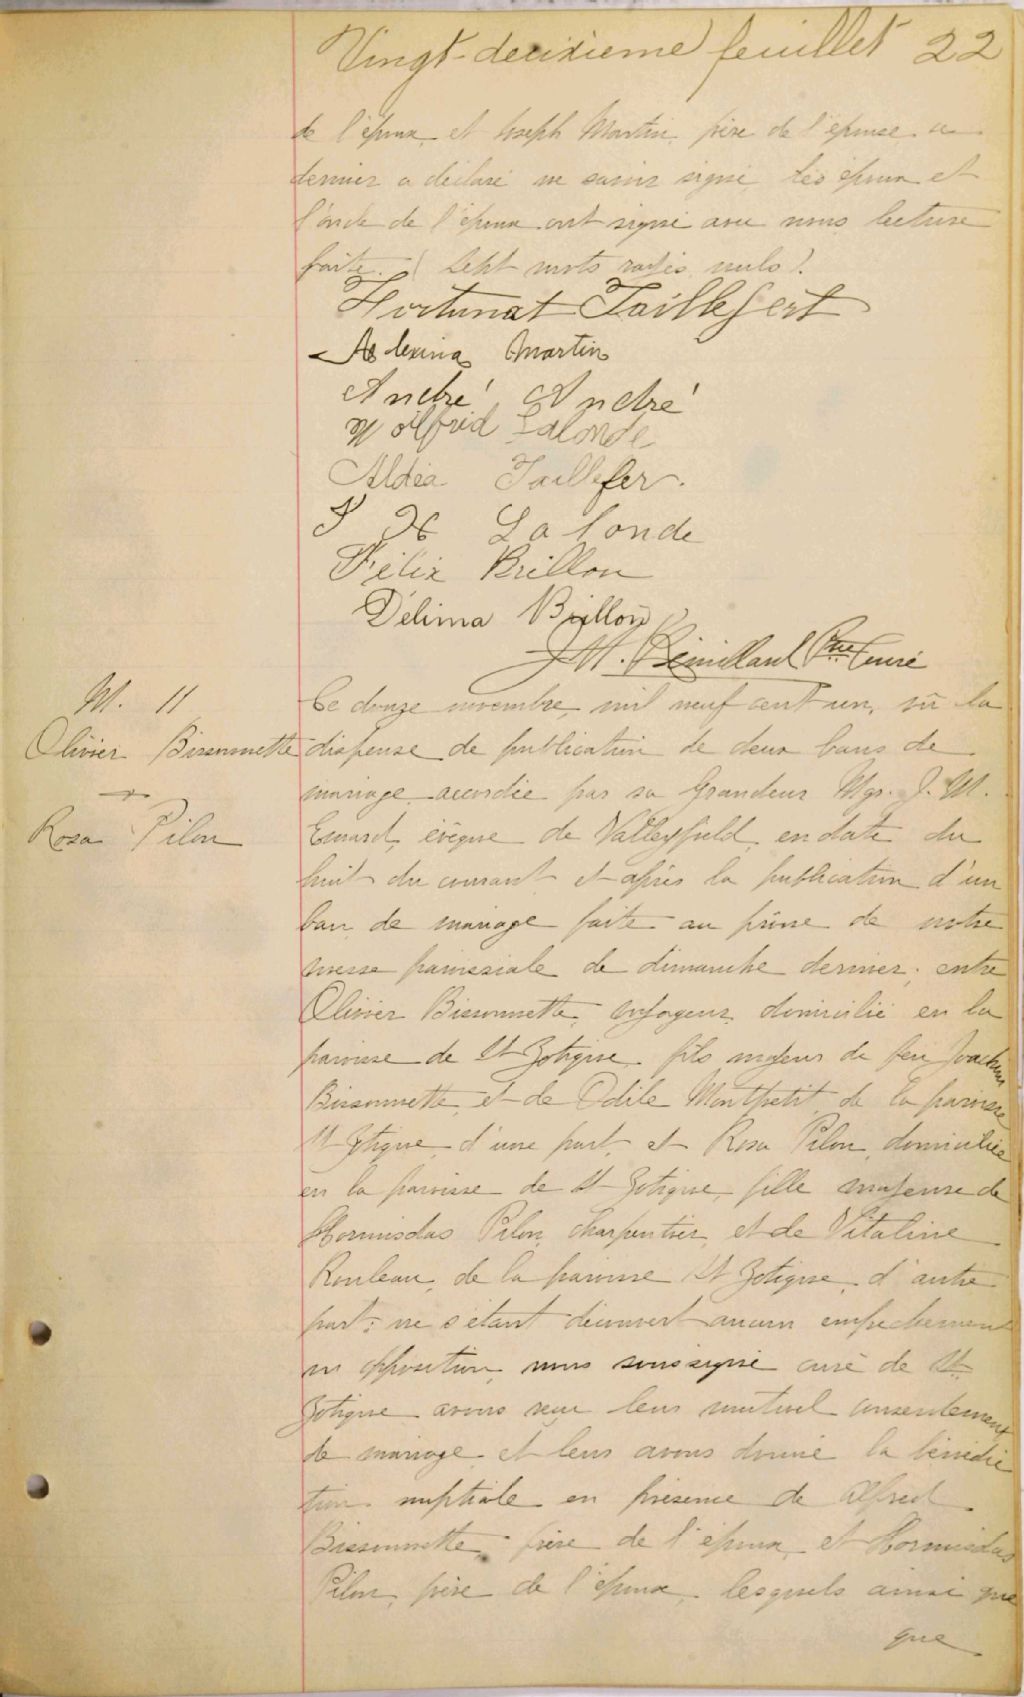 Vingt-deuxieme feuillet 22
de l'époux, et Joseph Martin, père de l'épouse ce
dernier a déclaré ne savoir signé les époux et
l'oncle de l'époux ont signé avec nous lecture
faite. (Sept mots rayés nuls).
Fortunat Taillefert
Alexina Martin
André André
Wilfrid Lalonde
Aldéa Taillefer.
J H Lalonde
Félix Brillon
Délima Brillon
J. M. Ptre Curé
M. 11
Olivier Bissonnette
Rosa Pilon
Ce douze novembre, mil neuf cent un, vû la
dispense de publication de deux bans de
mariage accordée par sa Grandeur Mgr. J. M.
Emard, évêque de Valleyfield, en date du
huit du courant et après la publication d'un
ban de mariage faite au prône de notre
messe paroissiale de dimanche dernier; entre
Olivier Bissonnette, voyageur, domicilié en la
paroisse de St Zotique, fils majeur de feu Joachim
Bissonnette, et de Odile Montpetit de la paroisse
St Zotique, d'une part, et Rosa Pilon, domiciliée
en la paroisse de St Zotique, fille majeure de
Hormisdas Pilon, charpentier, et de Vitaline
Rouleau, de la paroisse St Zotique, d'autre
part; ne s'étant découvert aucun empechement
ni opposition, nous soussigné curé de St
Zotique avons reçu leur mutuel consentement
de mariage et leur avons donné la bénédic
tion nuptiale en présence de Alfred
Bissonnette frère de l'époux, et Hormisdas
Pilon, père de l'épouse, lesquels ainsi que
que